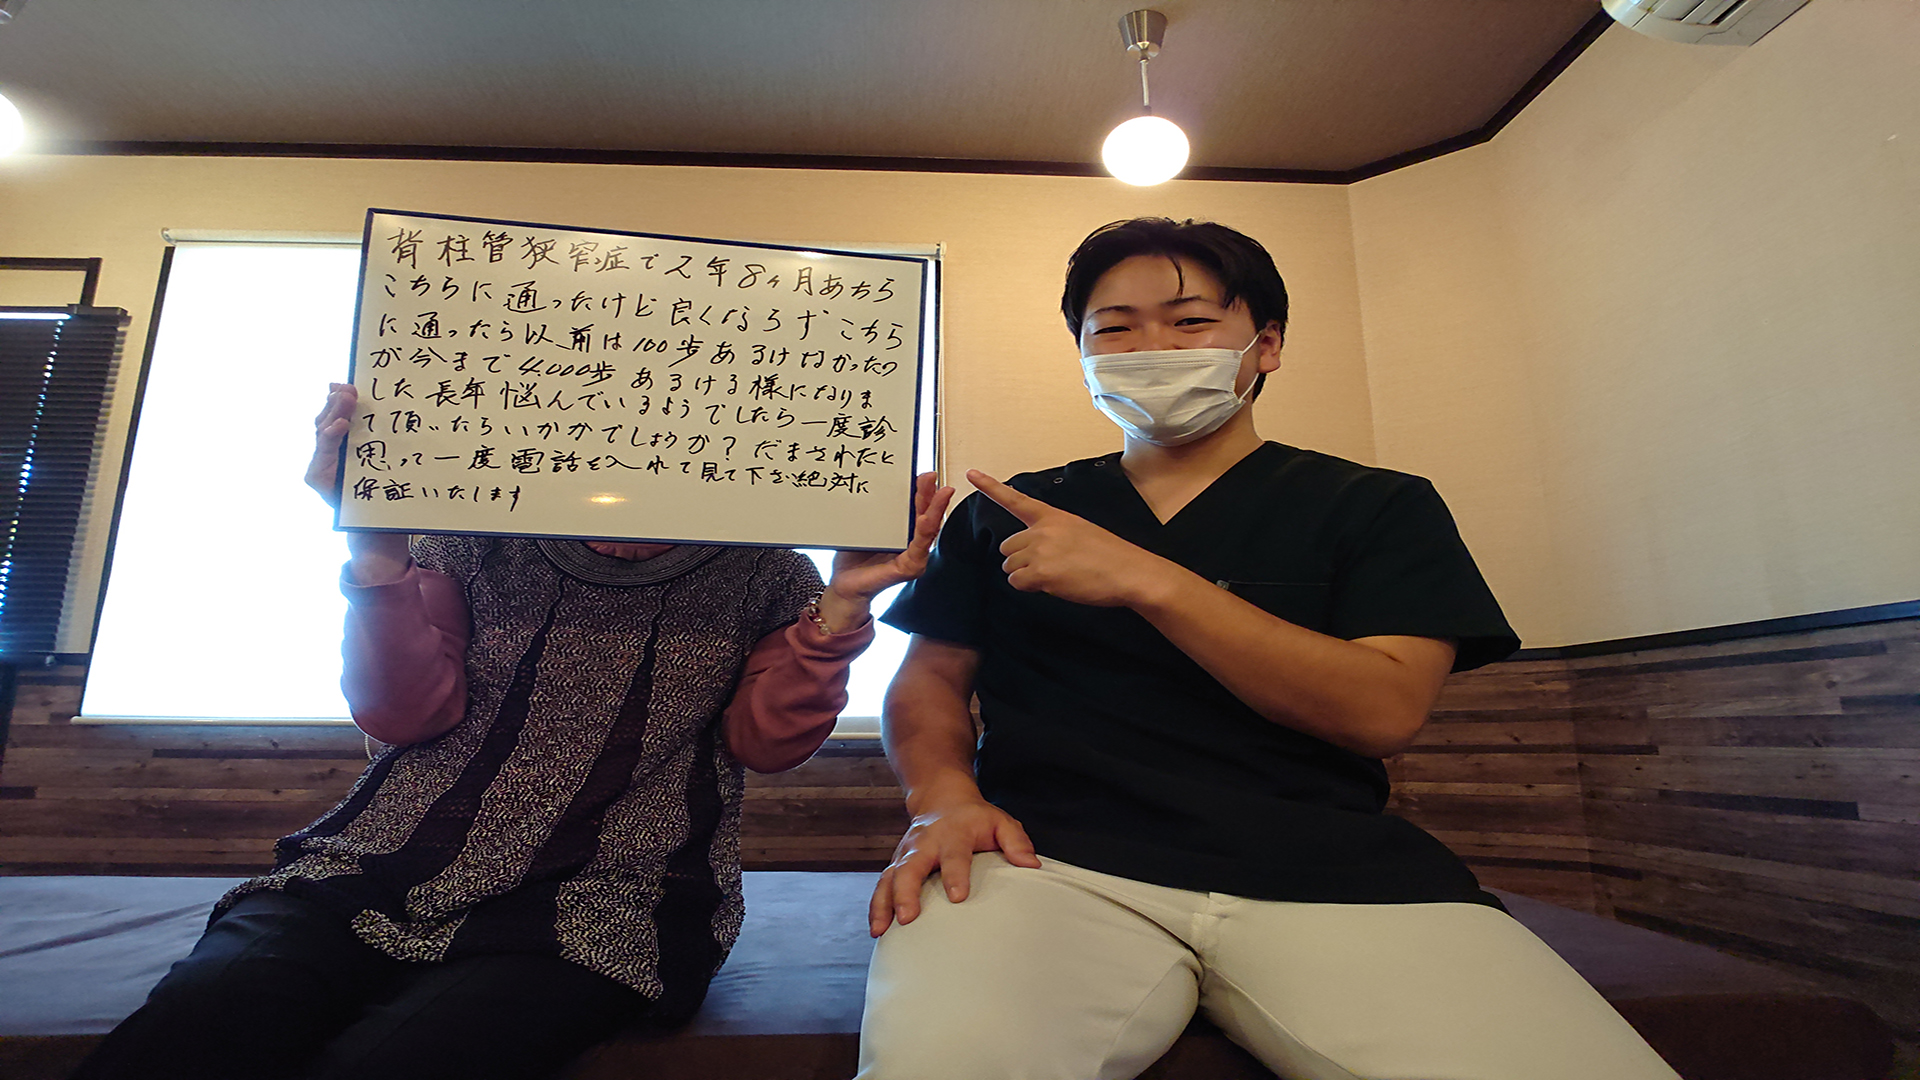 脊柱管狭窄症で2年8ヶ月あちら
こちらに通ったけど良くならずこちら
に通ったら以前は100歩あるけなかったの
が今まで4,000歩あるける様になりま
した長年悩んでいるようでしたら一度診
て頂いたらいかかでしょうか?だまされたと
思って一度電話を入れて見て下さい絶対に
保証いたします